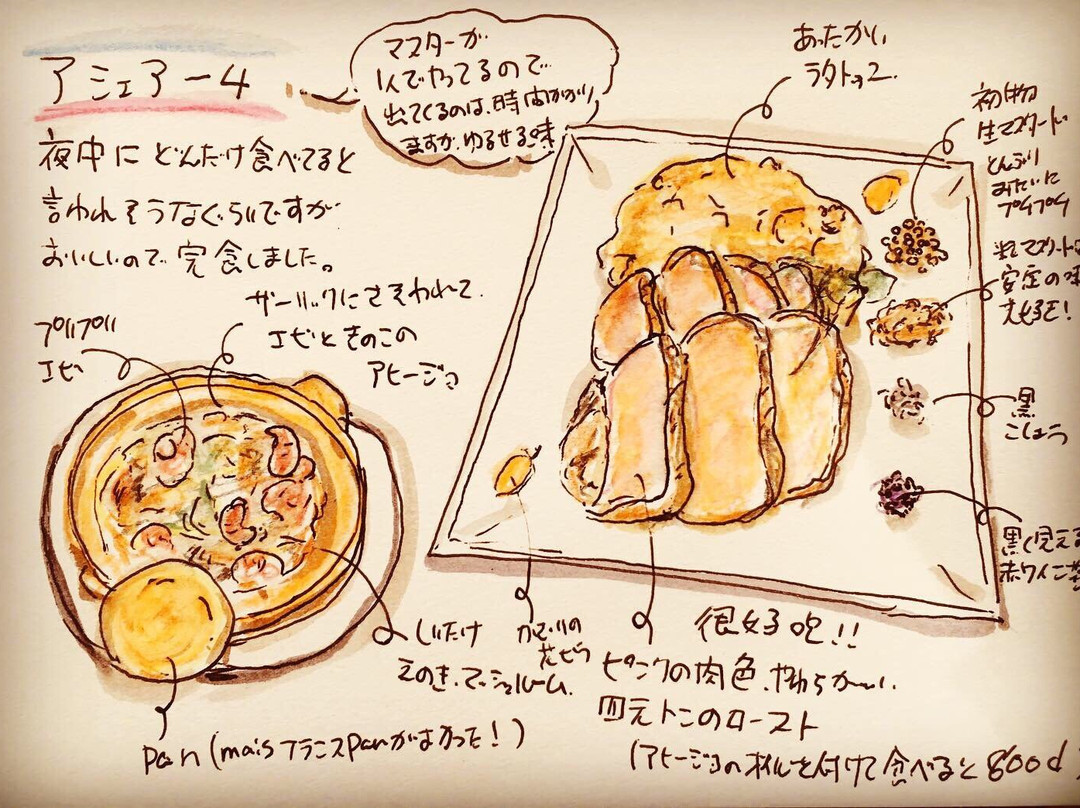 アシェアー4
マスターが
1人でやってるので
出てくるのは、時間かかり
ますが、ゆるせる味
夜中にどんだけ食べてると
言われそうなぐらいですが
おいしいので完食しました。
ガーリックにさそわれて
エビときのこの
アヒージョ
プリプリ
エビ
あったかい
ラタトゥユ
初物
生マスタード
とんぶり
みたいに
プチプチ
粒マスタード
安定の味
大好き!
黒
こしょう
黒く見える
赤ワイン
しいたけ
えのき、マッシュルーム
かざりの
花びら
很好吃!!
ピンクの肉色、やわらかーい、
四元トンのロースト
(アヒージョのオイルを付けて食べるとgood
Pan(maisフランスPanがよかった!)